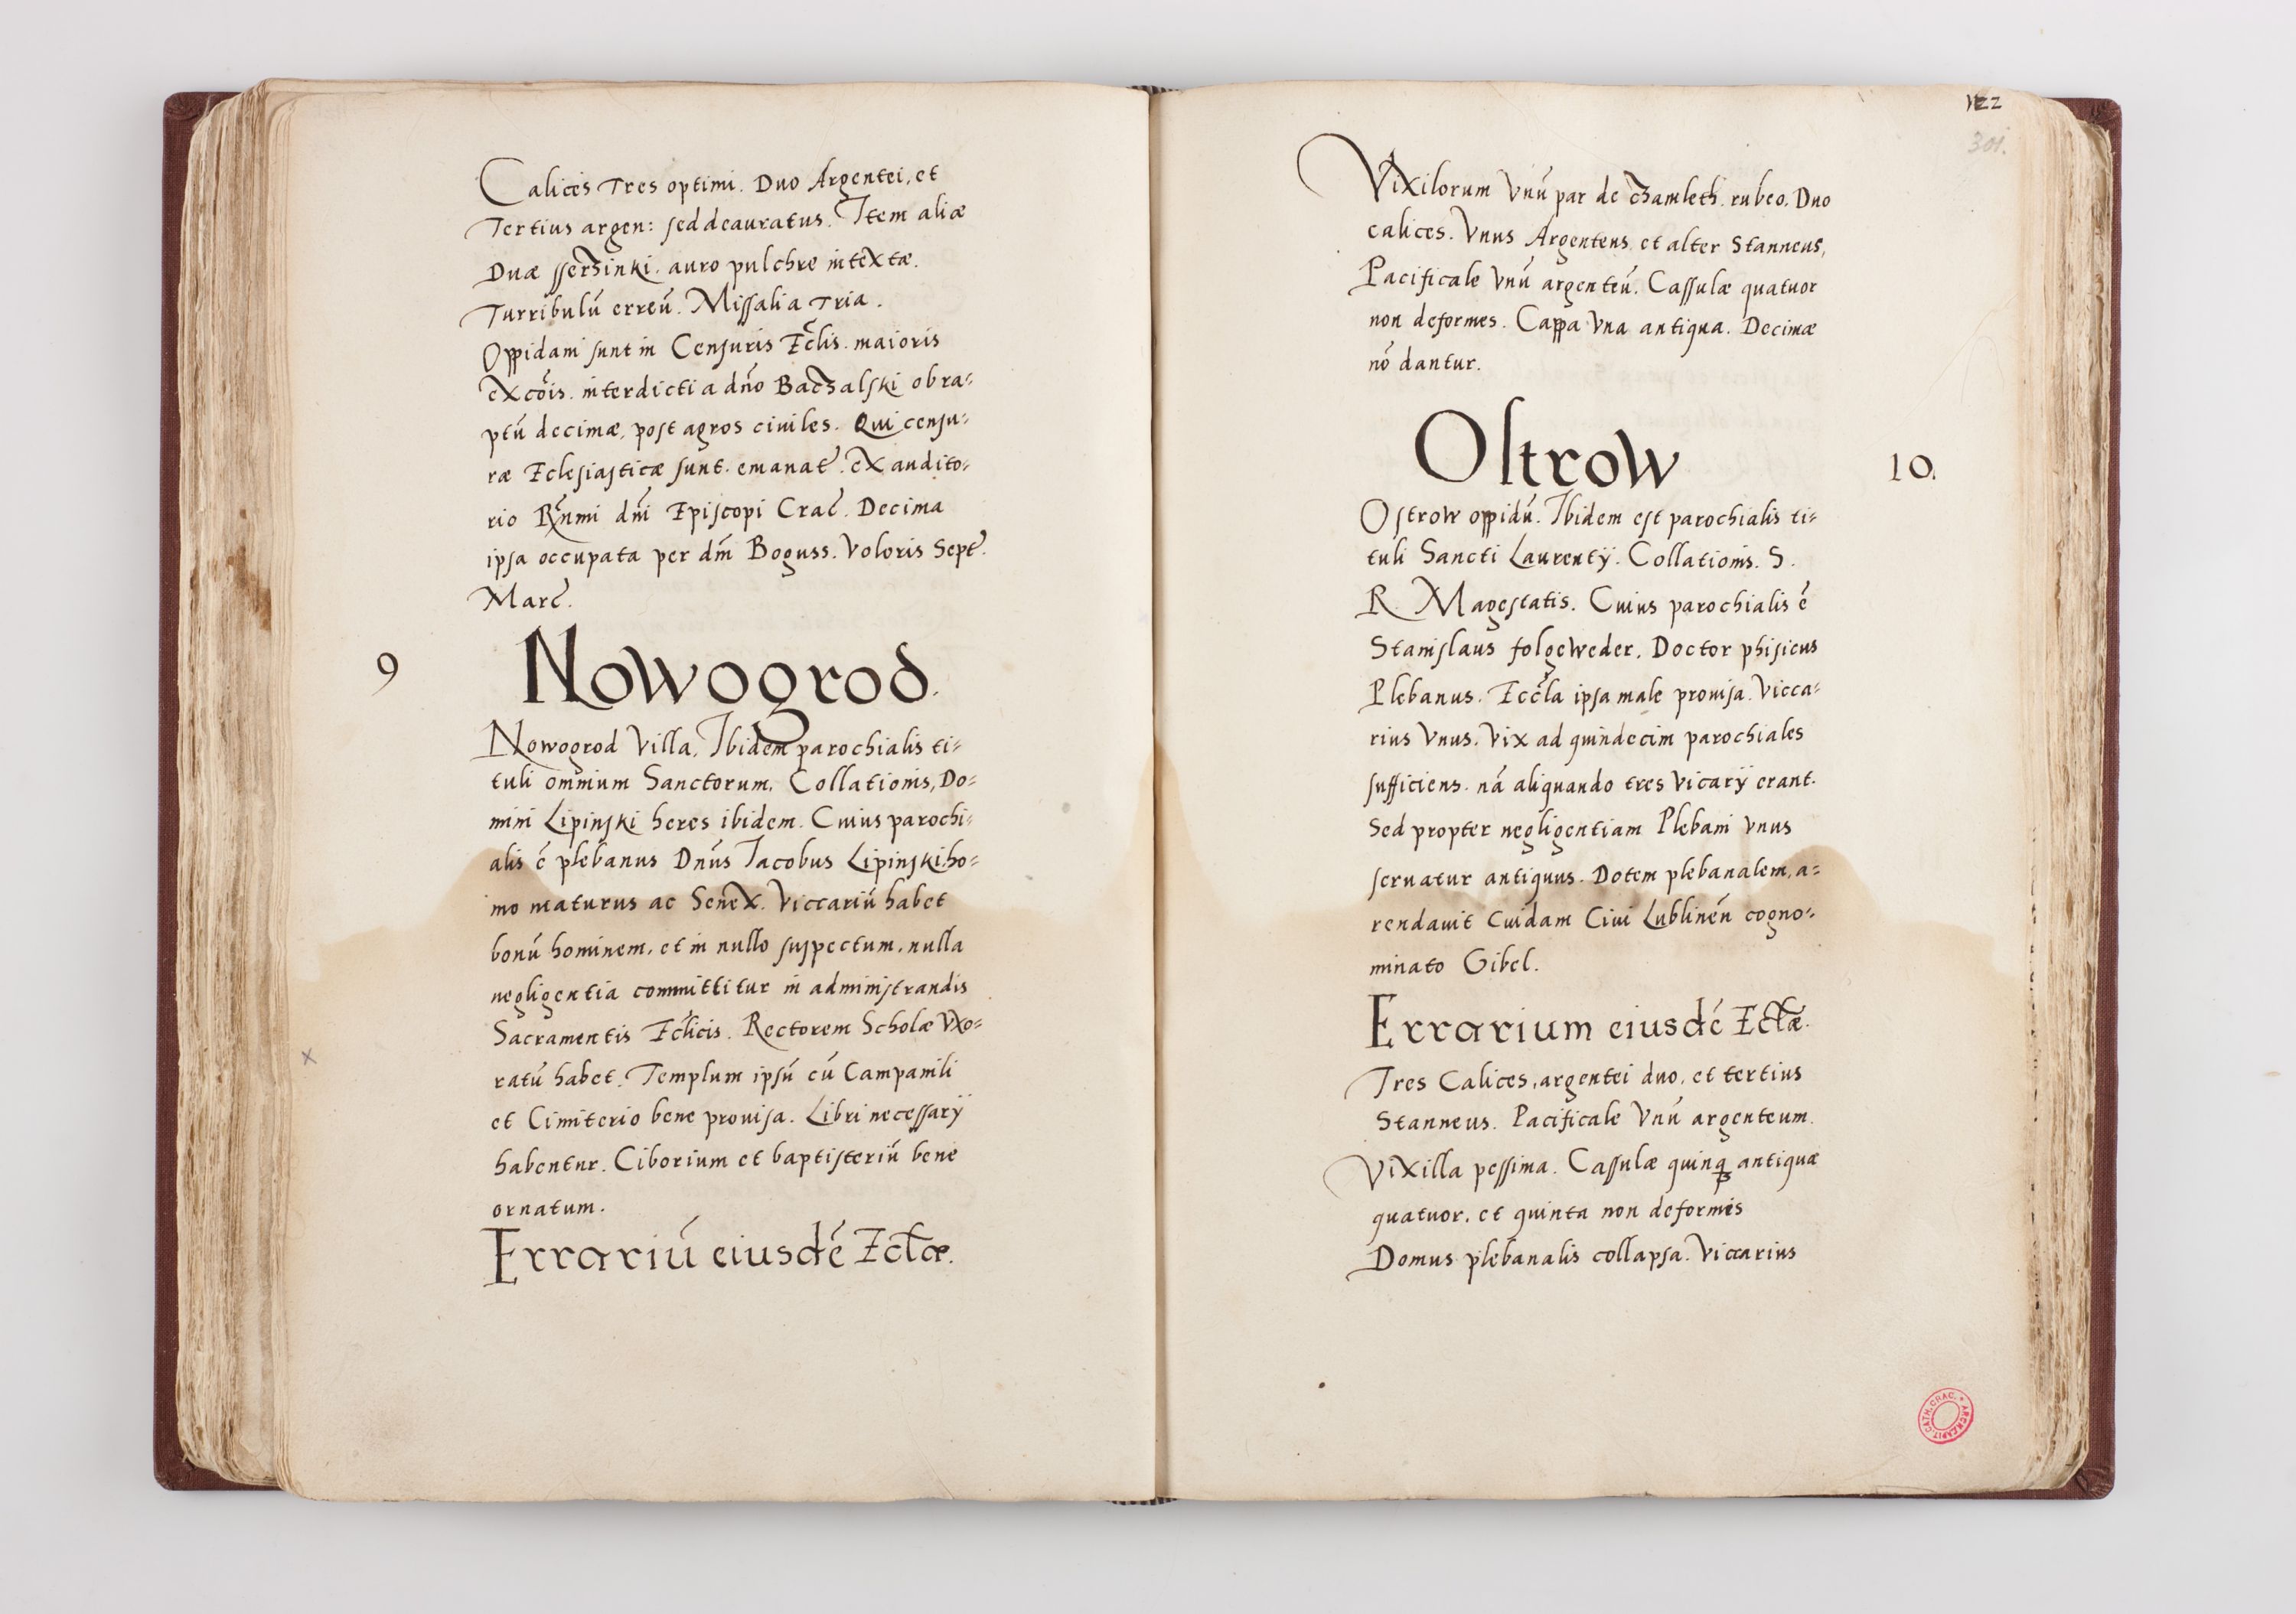 Calices Tres optimi. Duo Argentei, et
Tertius argen: sed deauratus. Item aliæ
Duæ sserzinki. auro pulchre intextæ.
Turribulū erreū. Missalia Tria.
Oppidani sunt in Censuris Ecclis. maioris
excōis. interdicti a dno Baczalski ob ra-
ptū decimæ, post agros ciuiles. Qui censu-
ræ Eclesiasticæ sunt. emanat. ex audito-
rio Rnmi dni Episcopi Crac. Decima
ipsa occupata per dm̄ Boguss. Voloris Sept.
Marc.
9
Nowogrod.
Nowogrod Villa. Ibidem parochialis ti-
tuli omnium Sanctorum. Collationis, Do-
mini Lipinski heres ibidem. Cuius parochi-
alis ē plebanus Dnus Iacobus Lipinski. ho-
mo maturus ac Senex. Viccariū habet
bonū hominem, et in nullo suspectum. nulla
negligentia committitur in administrandis
Sacramentis Ecclicis. Rectorem Scholæ Vxo-
ratū habet. Templum ipsū cū Campanili
et Cimiterio bene prouisa. Libri necessarÿ
habentur. Ciborium et baptisteriū bene
ornatum.
Errariū eiusdē Ecclæ.
122
301.
Vixilorum Vnū par de czamleth. rubeo. Duo
calices. Vnus Argenteus et alter Stanneus,
Pacificale Vnū argenteū. Cassulæ quatuor
non deformes. Cappa Vna antiqua. Decimæ
nō dantur.
Ostrow
10.
Ostrow oppidū. Ibidem est parochialis ti-
tuli Sancti Laurentÿ. Collationis. S.
R. Magestatis. Cuius parochialis ē
Stanislaus folgeweder. Doctor phisicus
Plebanus. Eccla ipsa male prouisa. Vicca-
rius Vnus. Vix ad quindecim parochiales
sufficiens. nā aliquando tres Vicarÿ erant.
Sed propter negligentiam Plebani Vnus
seruatur antiquus. Dotem plebanalem, a-
rendauit Cuidam Ciui Lublinēn cogno-
minato Gibel.
Errarium eiusdē Ecclæ.
Tres Calices, argentei duo, et tertius
Stanneus. Pacificale Vnū argenteum.
Vixilla pessima. Cassulæ quinqꝫ antiquæ
quatuor, et quinta non deformis
Domus plebanalis collapsa. Viccarius
ARCH. CAPIT. CATH. CRAC.